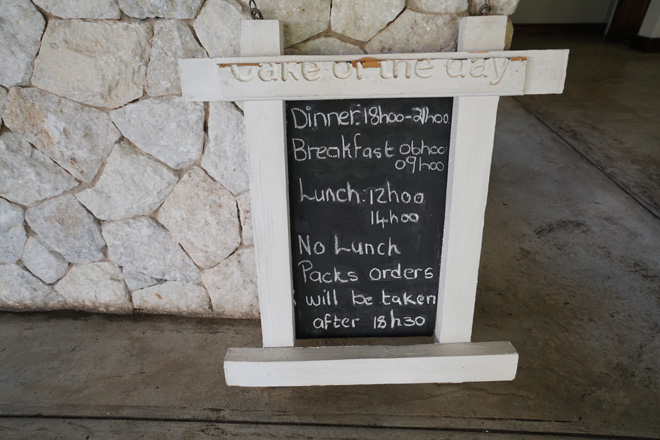 Cake of the day
Dinner: 18h00-21h00
Breakfast 06h00
09h00
Lunch: 12h00
14h00
No Lunch
Packs orders
will be taken
after 18h30